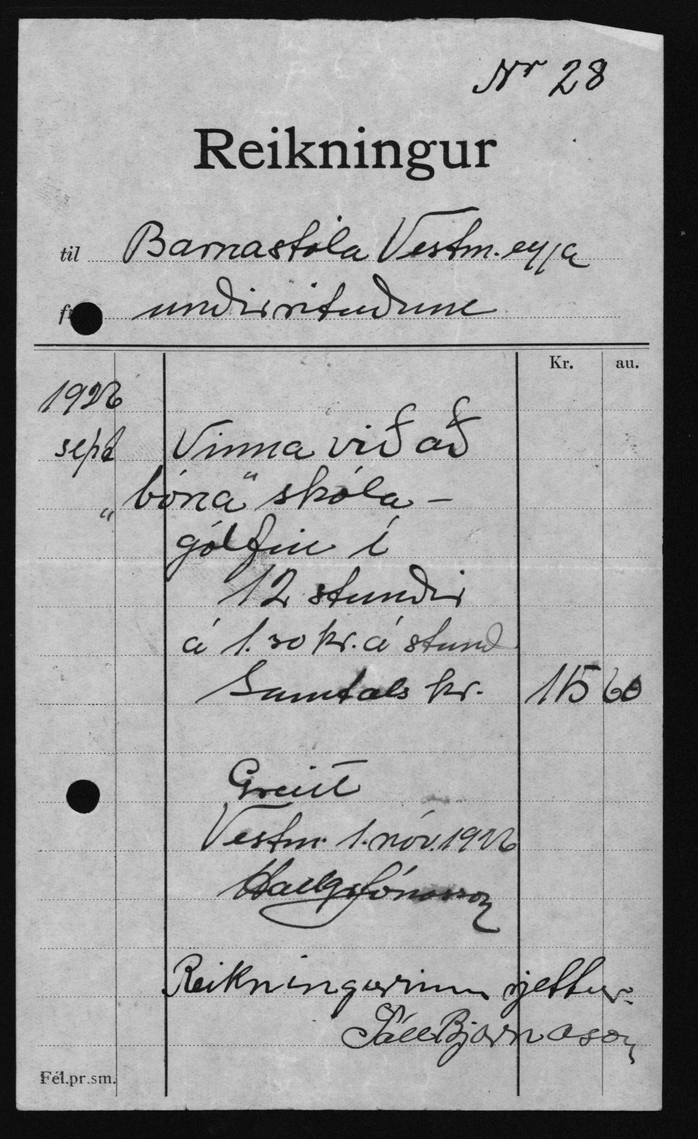 Nr 28
Reikningur
til Barnaskóla Vestm.eyja
frá undirrituðum
Kr. au.
1926
sept Vinna við að
" "bóna" skóla-
gólfin í
12 stundir
á 1.30 kr. á stund
Samtals kr. 15 60
Greitt
Vestm. 1. nóv. 1926
Hallgr Jónasson
Reikningurinn rjettur.
Páll Bjarnason
Fél.pr.sm.